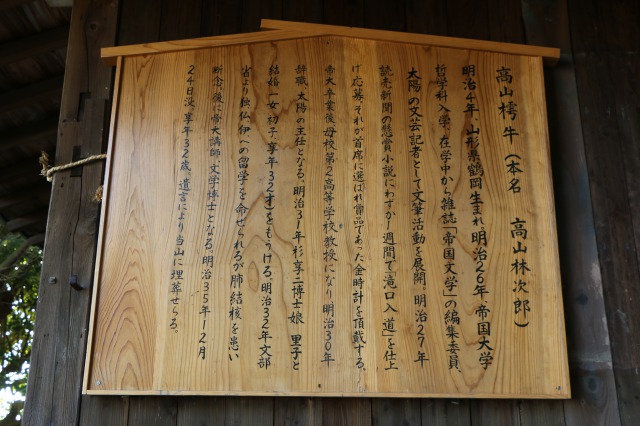 高山樗牛（本名　高山林次郎）
明治4年、山形県鶴岡生まれ、明治26年、帝国大学
哲学科入学、在学中から雑誌「帝国文学」の編集委員、
太陽の文芸記者として文筆活動を展開。明治27年
読売新聞の懸賞小説にわずか一週間で「滝口入道」を仕上
げ応募、それが首席に選ばれ賞品であった金時計を頂戴する。
帝大卒業後、母校第2高等学校教授になり明治30年
辞職、太陽の主任となる。明治31年杉享二博士娘　里子と
結婚一女（初子、享年32才）をもうける。明治32年文部
省より独仏伊への留学を命せられるが肺結核を患い
断念。後に帝大講師、文学博士となる。明治35年12月
24日没、享年32歳。遺言により当山に埋葬せらる。